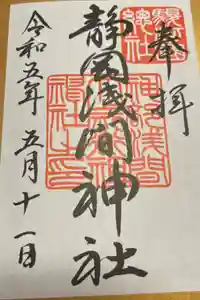 奉拝
静岡浅間神社
令和五年 五月十一日